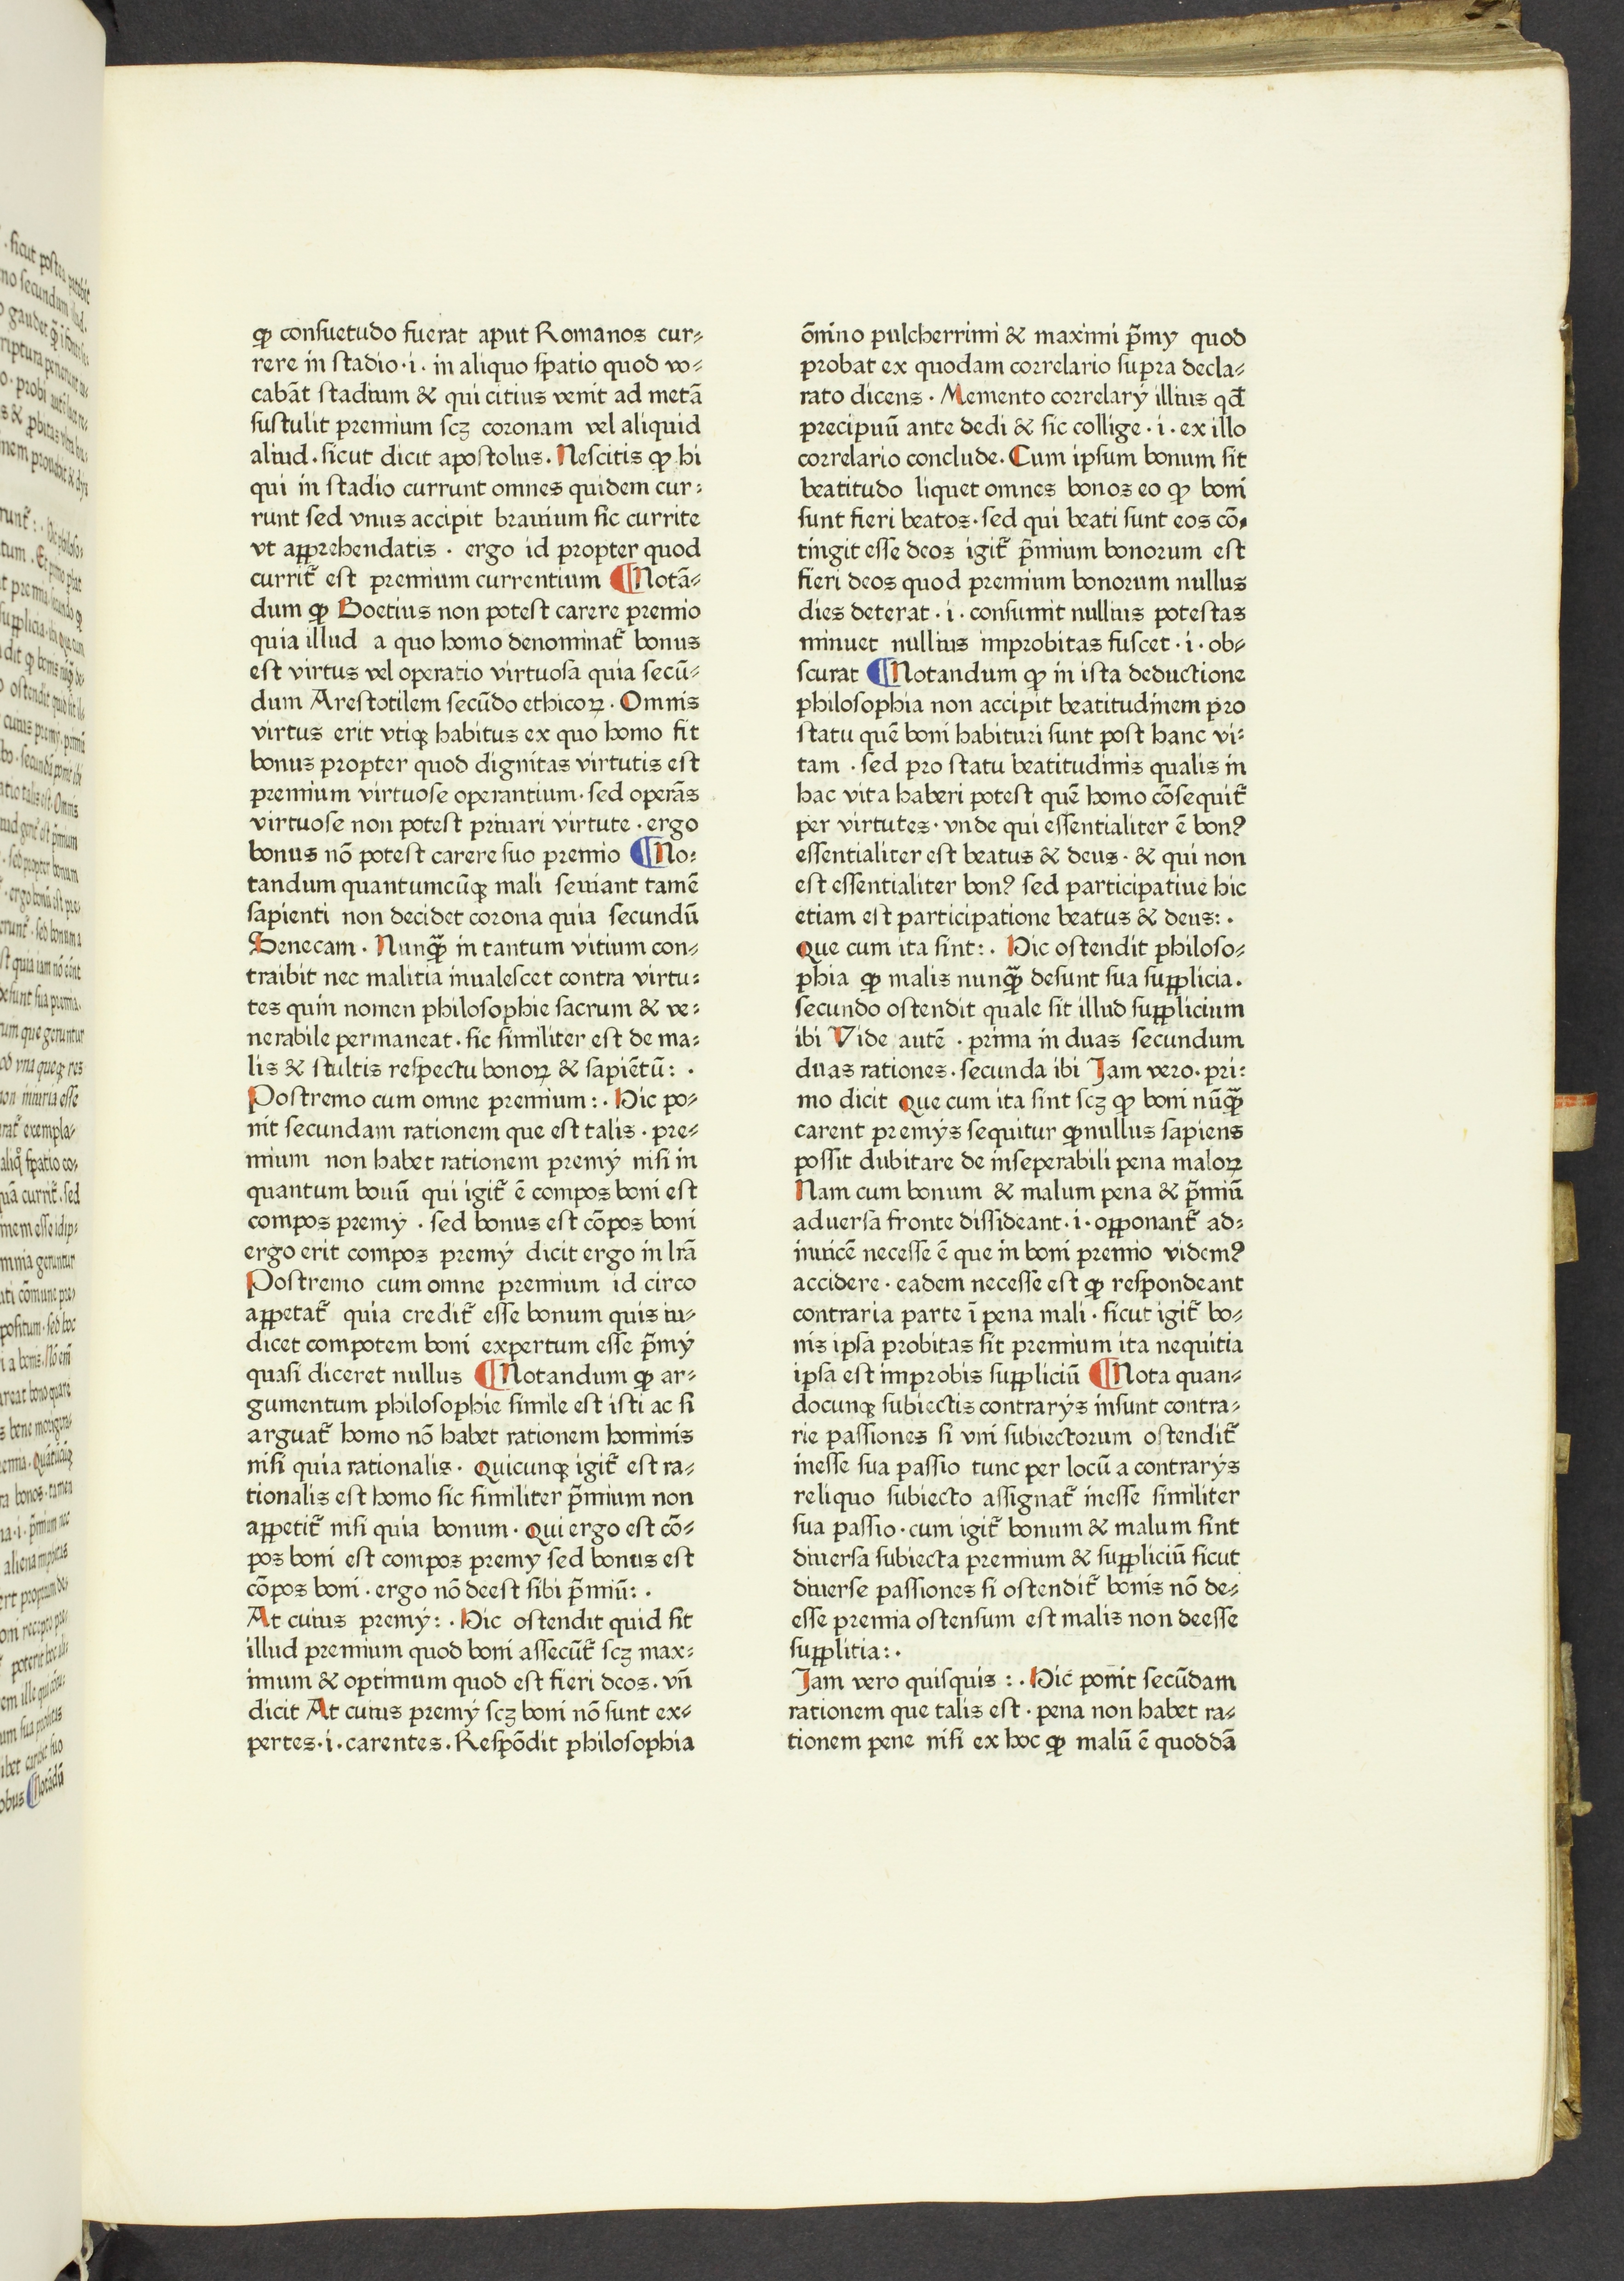 ꝙ consuetudo fuerat aput Romanos cur⸗
rere in stadio·i· in aliquo spatio quod vo⸗
cabāt stadium & qui citius venit ad metā
sustulit premium scꝫ coronam vel aliquid
aliud·sicut dicit apostolus. Nescitis ꝙ hi
qui in stadio currunt omnes quidem cur⸗
runt sed vnus accipit brauium sic currite
vt apprehendatis · ergo id propter quod
currit᷑ est premium currentium ¶Notā⸗
dum ꝙ Boetius non potest carere premio
quia illud a quo homo denominat᷑ bonus
est virtus vel operatio virtuosa quia secū⸗
dum Arestotilem secūdo ethicoꝝ · Omnis
virtus erit vtiqꝫ habitus ex quo homo fit
bonus propter quod dignitas virtutis est
premium virtuose operantium·sed operās
virtuose non potest priuari virtute · ergo
bonus nō potest carere suo premio ¶No⸗
tandum quantumcūqꝫ mali seuiant tamē
sapienti non decidet corona quia secundū
Senecam · Nunꝙ̄ in tantum vitium con⸗
trahit nec malitia inualescet contra virtu⸗
tes quin nomen philosophie sacrum & ve⸗
nerabile permaneat · sic similiter est de ma⸗
lis & stultis respectu bonoꝝ & sapiētū: ·
Postremo cum omne premium: · Hic po⸗
nit secundam rationem que est talis · pre⸗
mium non habet rationem premÿ nisi in
quantum bouū qui igit᷑ ē compos boni est
compos premÿ · sed bonus est cōpos boni
ergo erit compos premÿ dicit ergo in lrā
Postremo cum omne premium id circo
appetat᷑ quia credit᷑ esse bonum quis iu⸗
dicet compotem boni expertum esse p̄mÿ
quasi diceret nullus ¶Notandum ꝙ ar⸗
gumentum philosophie simile est isti ac si
arguat᷑ homo nō habet rationem hominis
nisi quia rationalis · Quicunqꝫ igit᷑ est ra⸗
tionalis est homo sic similiter p̄mium non
appetit᷑ nisi quia bonum · Qui ergo est cō⸗
pos boni est compos premÿ sed bonus est
cōpos boni · ergo nō deest sibi p̄miū: ·
At cuius premÿ: · Hic ostendit quid sit
illud premium quod boni assecūt᷑ scꝫ max⸗
imum & optimum quod est fieri deos · vn̄
dicit At cuius premÿ scꝫ boni nō sunt ex⸗
pertes·i·carentes. Respōdit philosophia
ōmino pulcherrimi & maximi p̄mÿ quod
probat ex quodam correlario supra decla⸗
rato dicens · Memento correlarÿ illius qđ
precipuū ante dedi & sic collige · i · ex illo
correlario conclude. Cum ipsum bonum sit
beatitudo liquet omnes bonos eo ꝙ boni
sunt fieri beatos·sed qui beati sunt eos cō⸗
tingit esse deos igit᷑ p̄mium bonorum est
fieri deos quod premium bonorum nullus
dies deterat · i · consumit nullius potestas
minuet nullius improbitas fuscet · i · ob⸗
scurat ¶Notandum ꝙ in ista deductione
philosophia non accipit beatitudinem pro
statu quē boni habituri sunt post hanc vi⸗
tam · sed pro statu beatitudinis qualis in
hac vita haberi potest quē homo cōsequit᷑
per virtutes · vnde qui essentialiter ē bon?
essentialiter est beatus & deus · & qui non
est essentialiter bon? sed participatiue hic
etiam est participatione beatus & deus: ·
Que cum ita sint: · Hic ostendit philoso⸗
phia ꝙ malis nunꝙ̄ desunt sua supplicia.
secundo ostendit quale sit illud supplicium
ibi Vide autē · prima in duas secundum
duas rationes · secunda ibi Jam vero · pri⸗
mo dicit Que cum ita sint scꝫ ꝙ boni nūꝙ̄
carent premÿs sequitur ꝙnullus sapiens
possit dubitare de inseperabili pena maloꝝ
Nam cum bonum & malum pena & p̄miū
aduersa fronte dissideant·i·opponant᷑ ad⸗
inuicē necesse ē que in boni premio videm?
accidere · eadem necesse est ꝙ respondeant
contraria parte ī pena mali · sicut igit᷑ bo⸗
nis ipsa probitas sit premium ita nequitia
ipsa est improbis suppliciū ¶Nota quan⸗
docunqꝫ subiectis contrarÿs insunt contra⸗
rie passiones si vni subiectorum ostendit᷑
inesse sua passio tunc per locū a contrarÿs
reliquo subiecto assignat᷑ inesse similiter
sua passio · cum igit᷑ bonum & malum sint
diuersa subiecta premium & suppliciū sicut
diuerse passiones si ostendit᷑ bonis nō de⸗
esse premia ostensum est malis non deesse
supplitia: ·
Jam vero quisquis : · Hic ponit secūdam
rationem que talis est · pena non habet ra⸗
tionem pene nisi ex hoc ꝙ malū ē quoddā